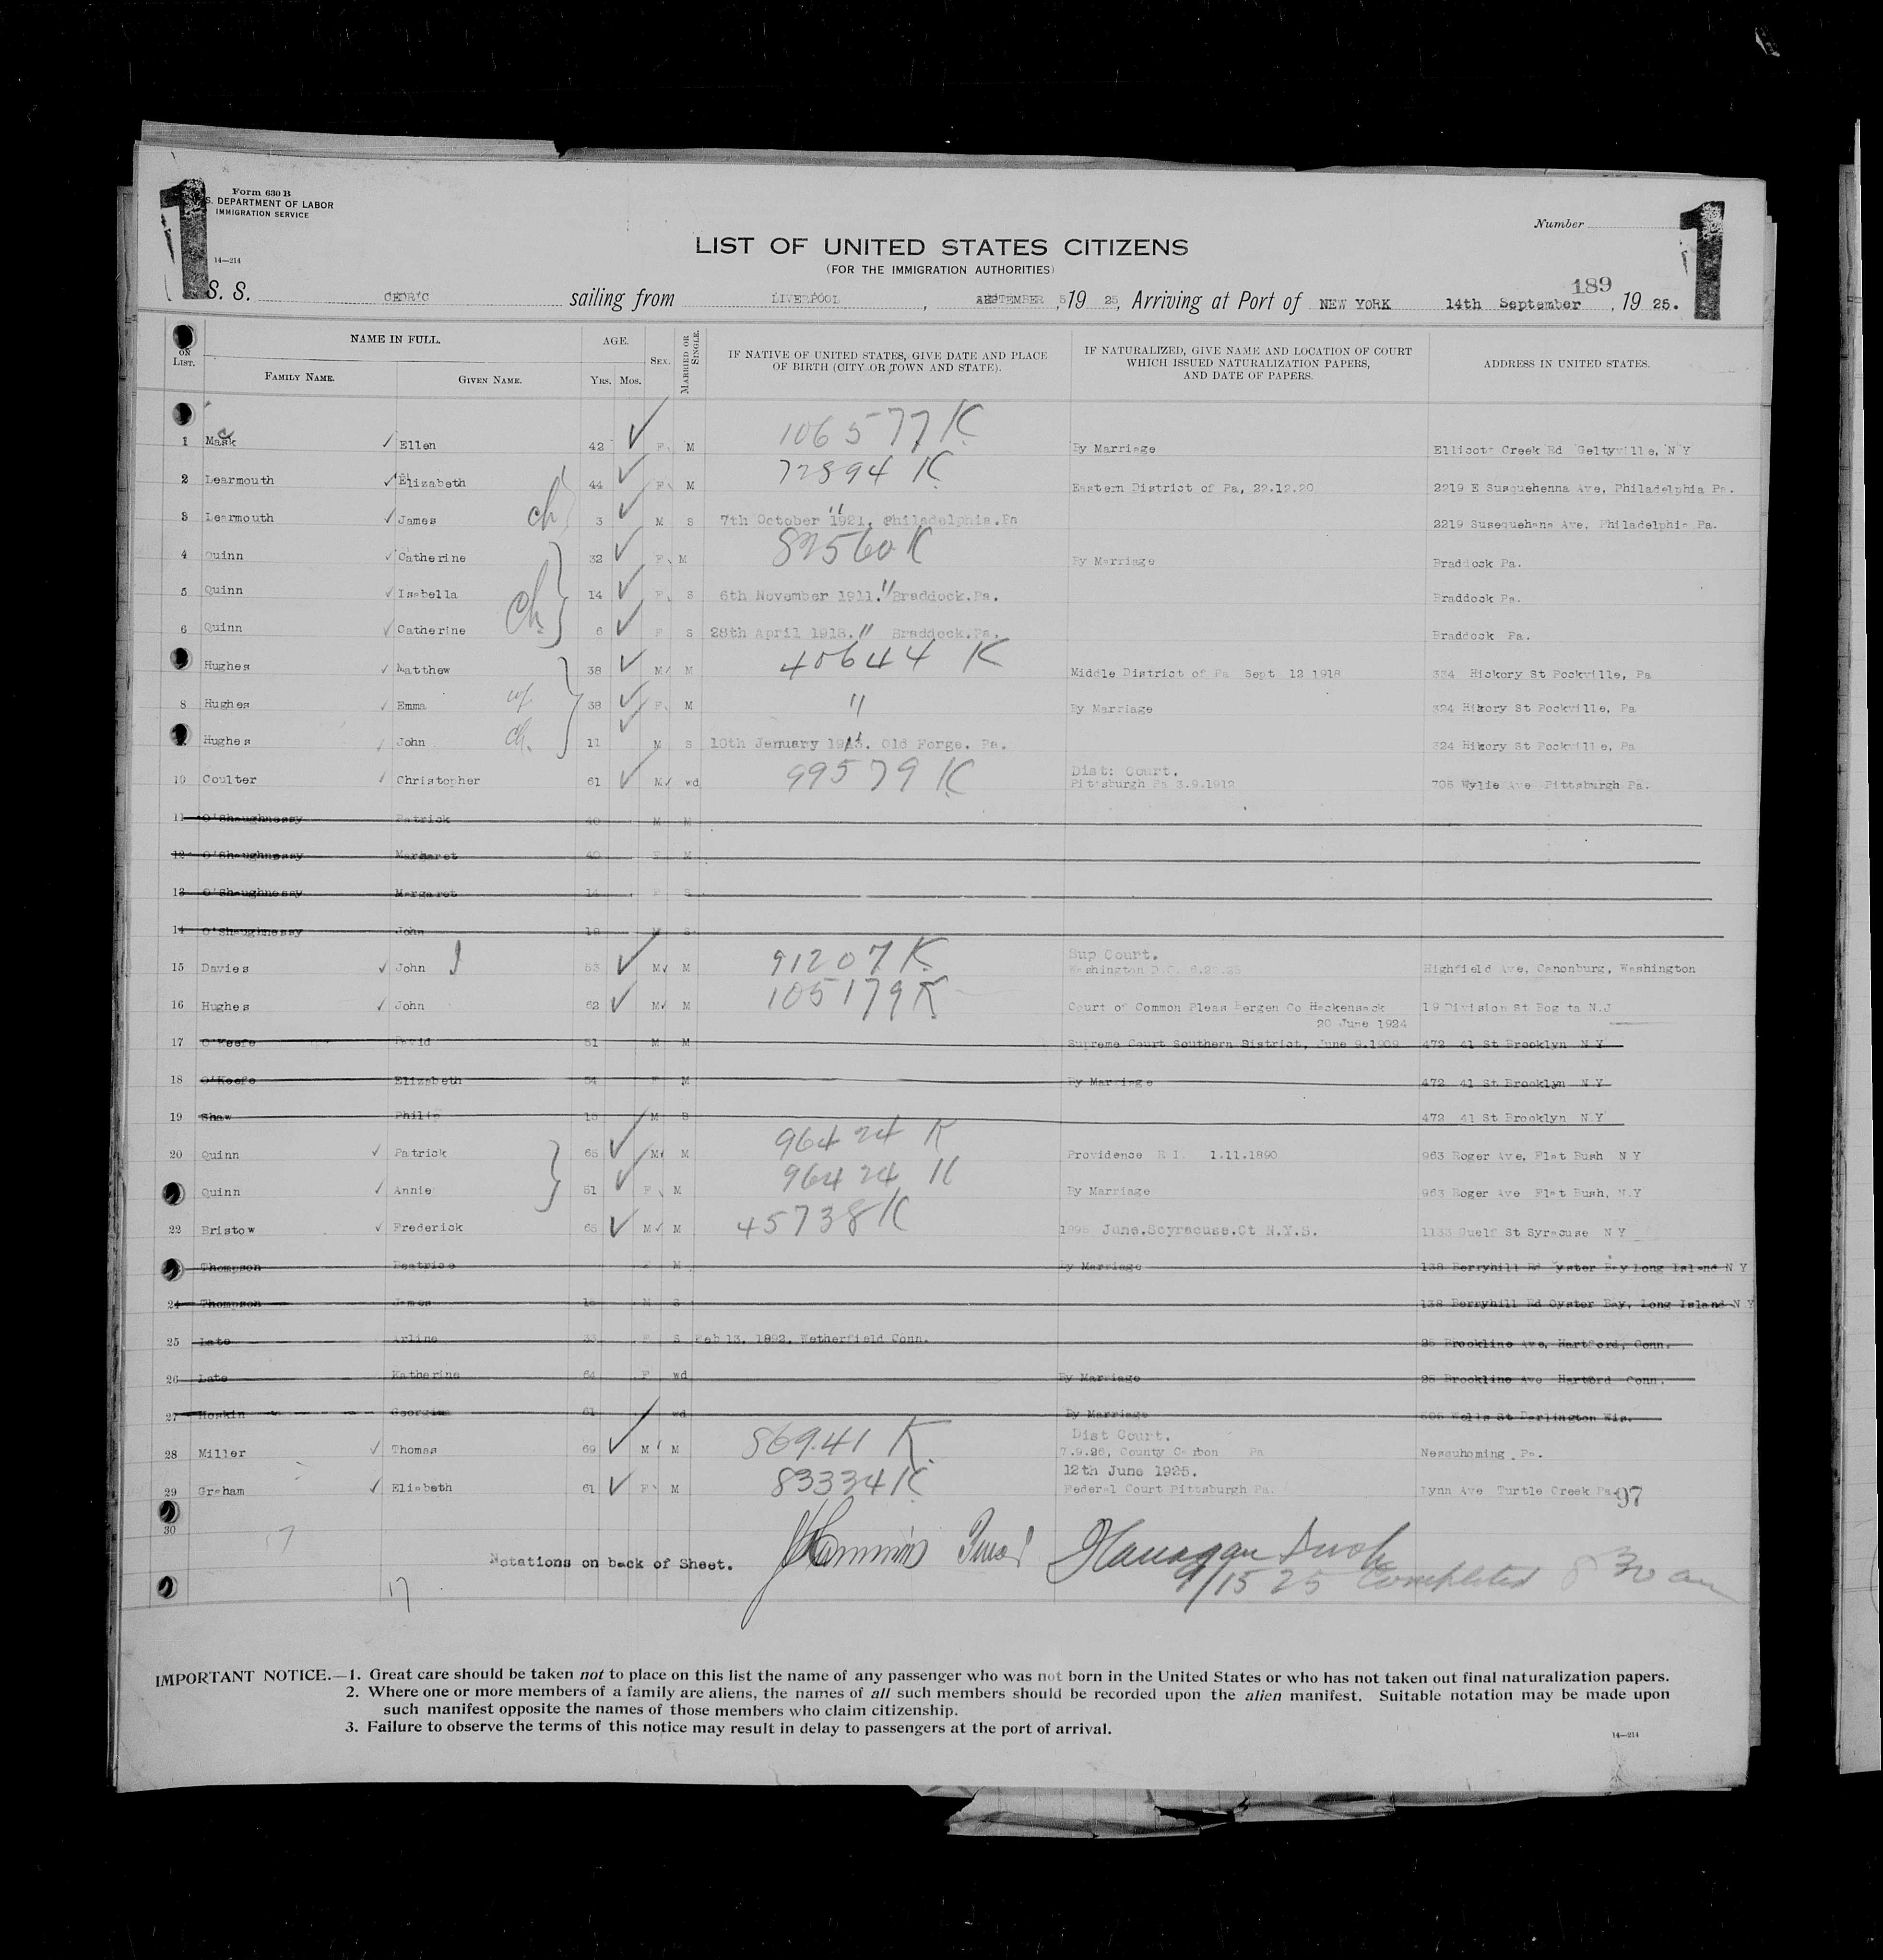 Form 630 B
S. DEPARTMENT OF LABOR
IMMIGRATION SERVICE
14—214
1
1
Number
LIST OF UNITED STATES CITIZENS
(FOR THE IMMIGRATION AUTHORITIES)
189
S. S. CEDRIC sailing from LIVERPOOL, SEPTEMBER 5, 19 25, Arriving at Port of NEW YORK 14th September, 19 25.
ON LIST.
NAME IN FULL.
FAMILY NAME.
GIVEN NAME.
AGE.
Yrs. Mos.
SEX.
MARRIED OR SINGLE.
IF NATIVE OF UNITED STATES, GIVE DATE AND PLACE OF BIRTH (CITY OR TOWN AND STATE).
IF NATURALIZED, GIVE NAME AND LOCATION OF COURT WHICH ISSUED NATURALIZATION PAPERS, AND DATE OF PAPERS.
ADDRESS IN UNITED STATES.
1 Ellen 42 F M 106577 K By Marriage Ellicott Creek Rd Geltyville, N Y
2 Learmouth Elizabeth 44 F M 72894 K Eastern District of Pa, 22.12.20 2219 E Susquehenna Ave, Philadelphia Pa.
3 Learmouth James ch 3 M S 7th October 1921. Philadelphia.Pa 2219 Susequehana Ave, Philadelphia Pa.
4 Quinn Catherine 32 F M 82560 K By Marriage Braddock Pa.
5 Quinn Isabella 14 F S 6th November 1911. Braddock.Pa. Braddock Pa.
6 Quinn Catherine Ch. 6 F S 28th April 1918. Braddock.Pa. Braddock Pa.
Hughes Matthew 38 M M 40644 K Middle District of Pa Sept 12 1918 334 Hickory St Rockville, Pa
8 Hughes Emma wf. 38 F M " By Marriage 324 Hikory St Rockville, Pa
Hughes John ch. 11 M S 10th January Old Forge. Pa. 324 Hikory St Rockville, Pa
10 Coulter Christopher 61 M wd 99579 K Dist: Court. Pittsburgh Pa 3.9.1912 705 Wylie Ave Pittsburgh Pa.
11 O'Shaughnessy Patrick 40 M M
12 O'Shaughnessy Margaret 40 F M
13 O'Shaughnessy Margaret 14 F S
14 O'Shaughnessy John S
15 Davies John 53 M M 91207 K Sup Court. Washington Highfield Ave, Canonburg, Washington
16 Hughes John 62 M M 105179 K Court of Common Pleas Bergen Co Hackensack 20 June 1924 19 Division St Bogota N.J
17 O'Keefe David 51 M M Supreme Court Southern District, June 9.1909 472 41 St Brooklyn N Y
18 O'Keefe Elizabeth 54 F M By Marriage 472 41 St Brooklyn N Y
19 Shaw Philip 15 M S 472 41 St Brooklyn N Y
20 Quinn Patrick 65 M M 96424 K Providence R I. 1.11.1890 963 Roger Ave, Flat Bush N Y
Quinn Annie 61 F M 96424 K By Marriage 963 Roger Ave Flat Bush, N.Y
22 Bristow Frederick 65 M M 45738 K June.Scyracuse.Ct N.Y.S. 1133 Guelf St Syracuse N Y
Thompson Beatrice F M By Marriage 138 Berryhill Rd Oyster Bay Long Island N Y
24 Thompson James M S 138 Berryhill Rd Oyster Bay, Long Island N Y
25 Late Arline 33 F S Feb 13, 1892, Wetherfield Conn. 25 Brookline Ave, Hartford, Conn.
26 Late Katherine 64 F wd By Marriage 25 Brookline Ave Hartford Conn.
27 Hoskin Georgina 61 wd By Marriage Wells St Darlington Wis.
28 Miller Thomas 69 M M 86941 K Dist Court. 7.9.96, County Carbon Pa Nesquhoming. Pa.
29 Graham Elisbeth 61 F M 83334 K 12th June 1925. Federal Court Pittsburgh Pa. Lynn Ave Turtle Creek Pa.
97
30
17
Notations on back of Sheet.
17
9/15 25 Completed 8 30 am
IMPORTANT NOTICE.—1. Great care should be taken not to place on this list the name of any passenger who was not born in the United States or who has not taken out final naturalization papers.
2. Where one or more members of a family are aliens, the names of all such members should be recorded upon the alien manifest. Suitable notation may be made upon
such manifest opposite the names of those members who claim citizenship.
3. Failure to observe the terms of this notice may result in delay to passengers at the port of arrival.
14—214